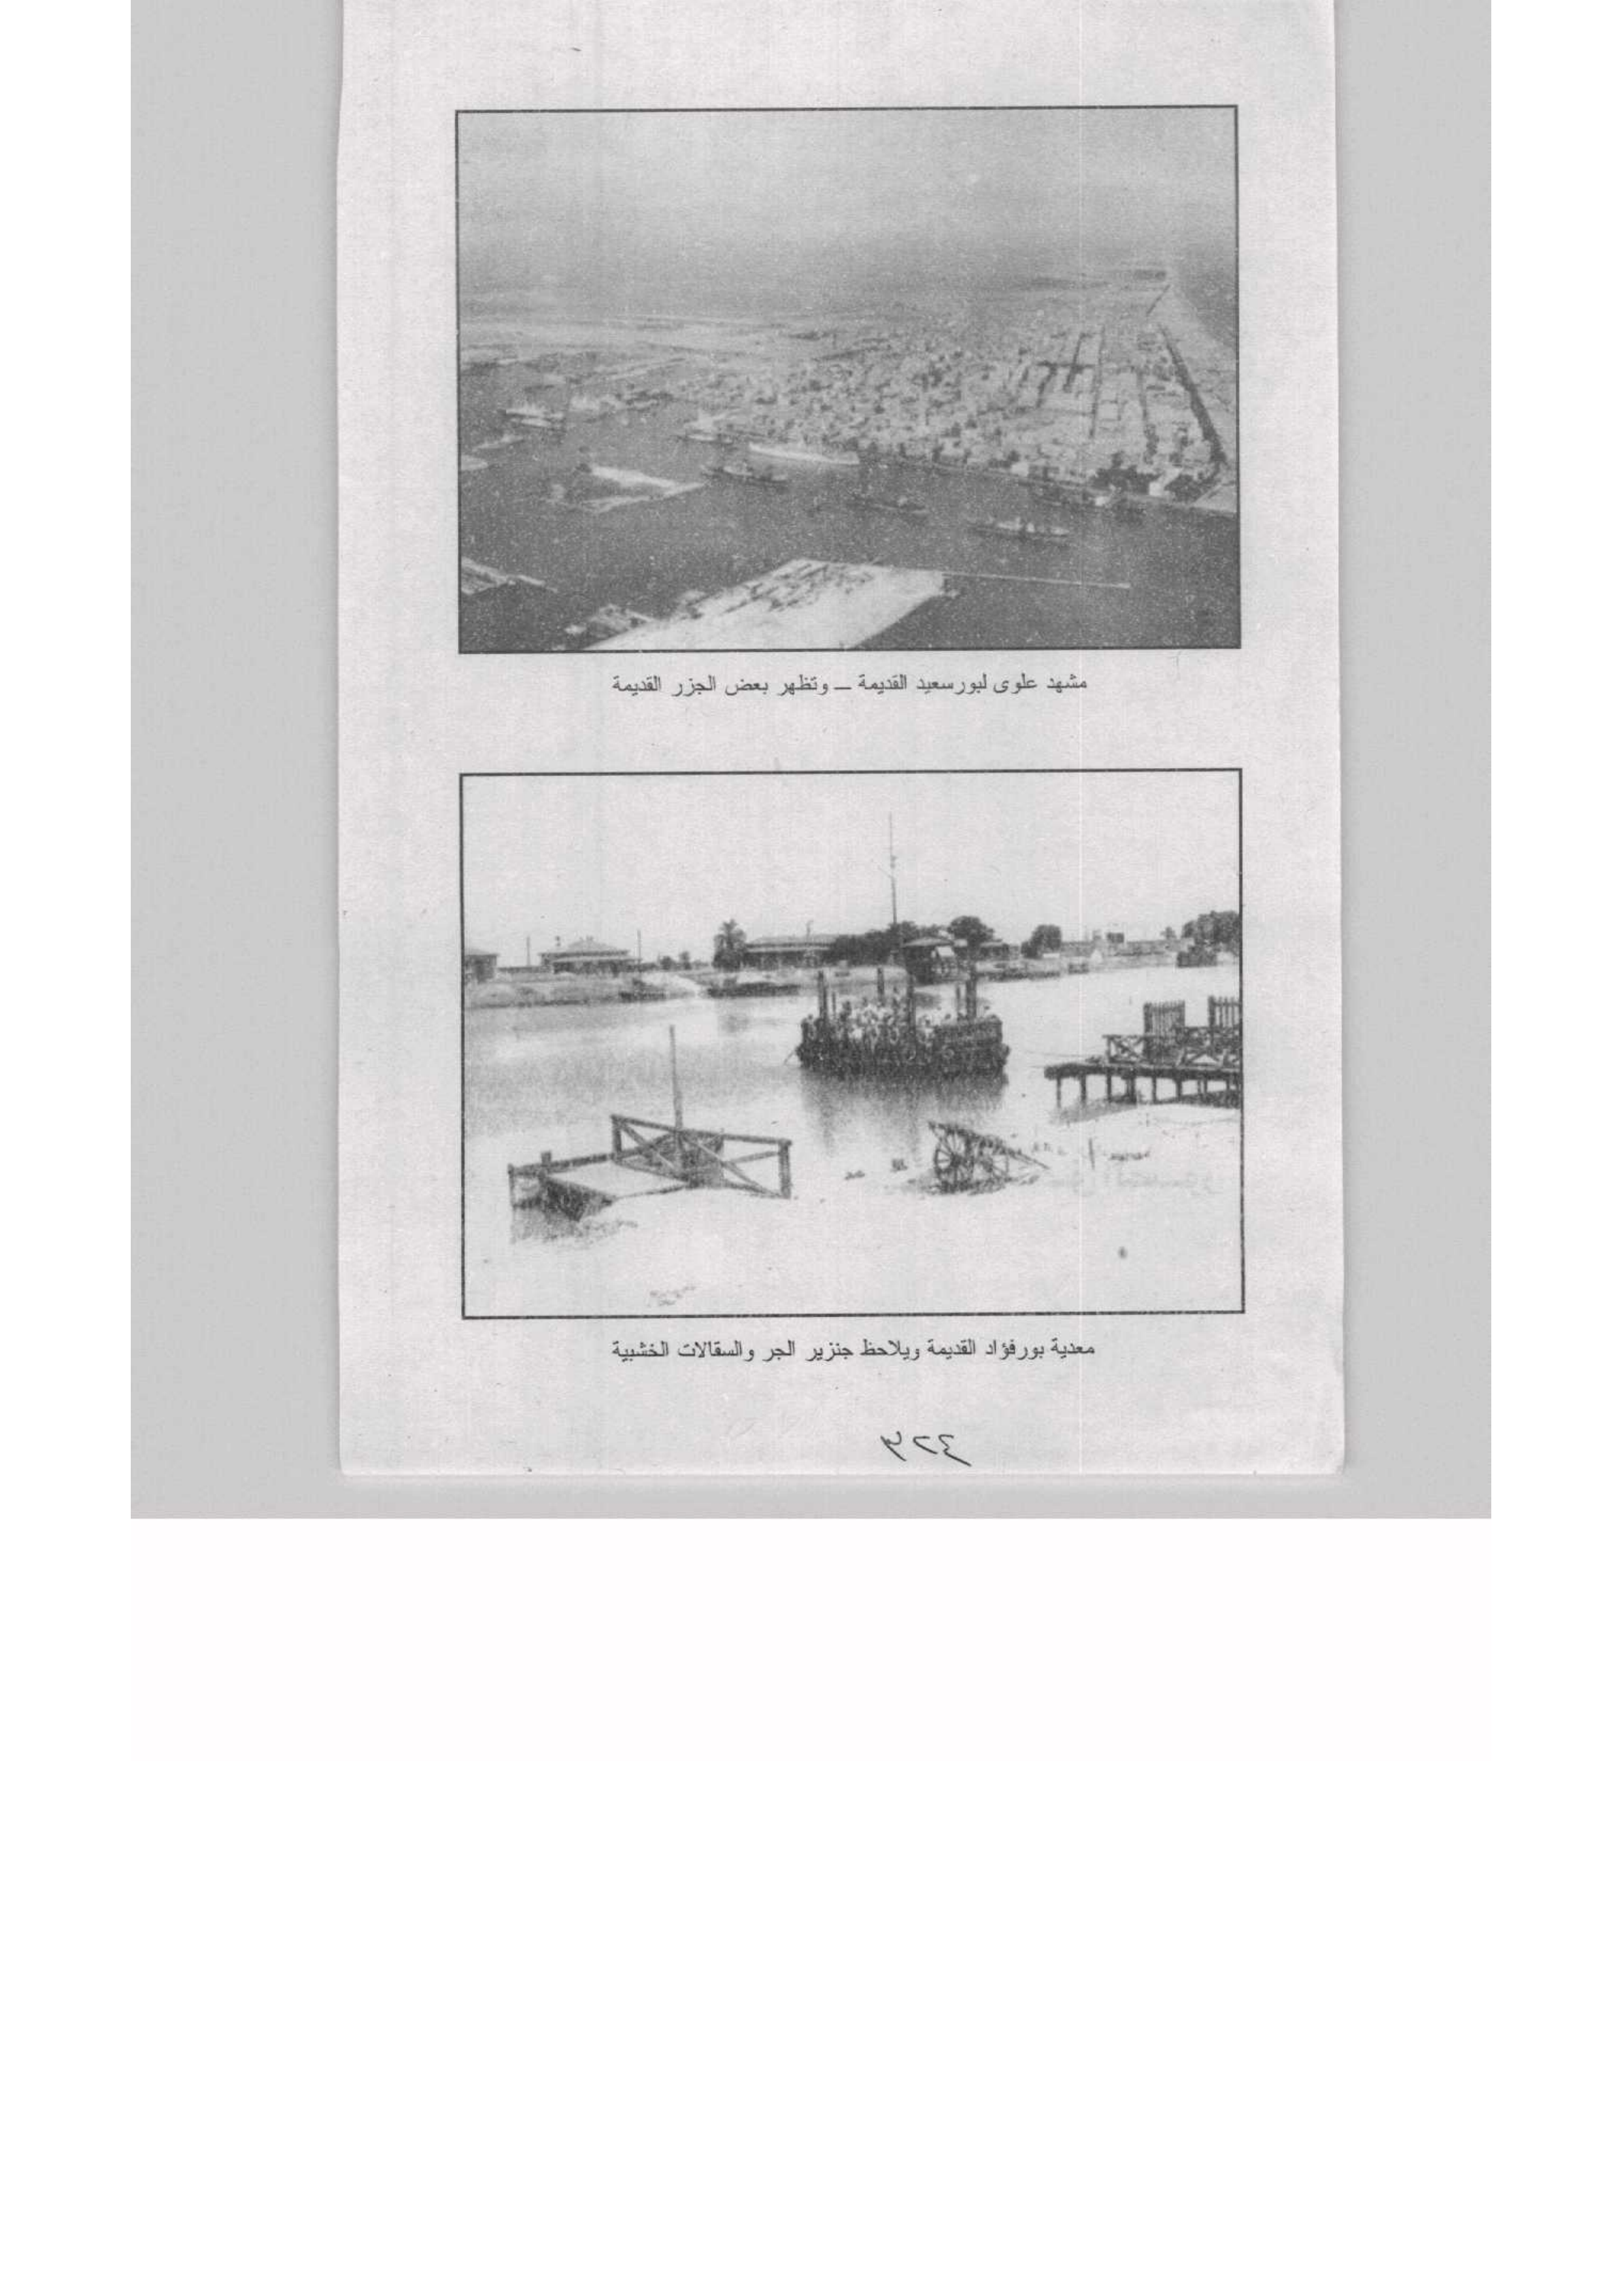 مشهد علوى لبورسعيد القديمة ـــ وتظهر بعض الجزر القديمة
معدية بورفؤاد القديمة ويلاحظ جنزير الجر والسقالات الخشبية